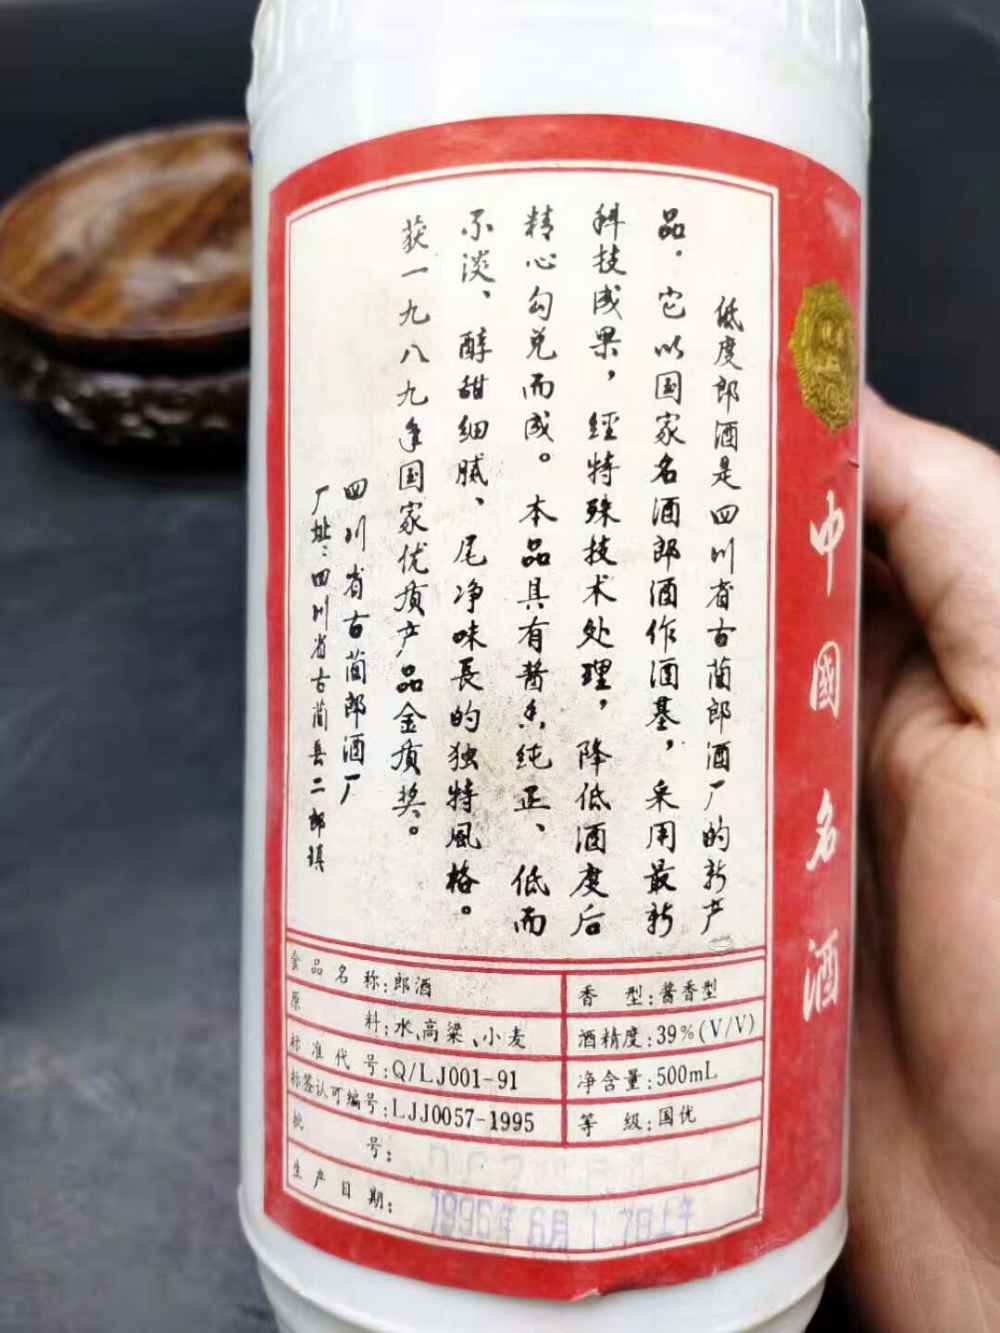 低度郎酒是四川省古蔺郎酒厂的新产
品．它以国家名酒郎酒作酒基，采用最新
科技成果，经特殊技术处理，降低酒度后
精心勾兑而成。本品具有酱香纯正、低而
不淡、醇甜细腻、尾净味長的独特風格。
获一九八九年国家优质产品金质奖。
四川省古蔺郎酒厂
厂址：四川省古蔺县二郎镇
食品名称：郎酒
香型：酱香型
原料：水、高粱、小麦
酒精度：39%(V/V)
标准代号：Q/LJ001-91
净含量：500mL
标签认可编号：LJJ0057-1995
等级：国优
批号：
生产日期：1996年6月17日上午
中國名酒